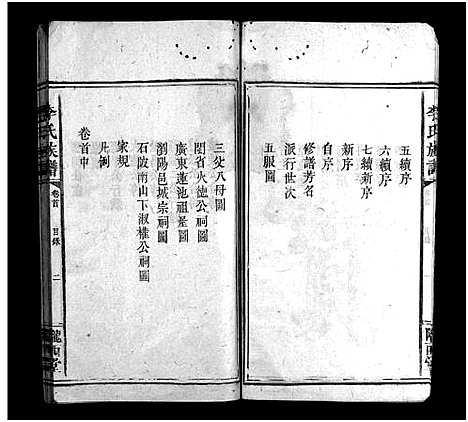 李氏族譜
五續序
六續序
七續新序
新序
自序
修譜芳名
派行世次
五服圖
三父八母圖
閩省火德公祠圖
廣東蓮池祖塋圖
瀏陽邑城宗祠圖
石陂南山下淑權公祠圖
家規
凡例
卷首中
李氏族譜
卷首
目錄
二
隴西堂
隴西堂